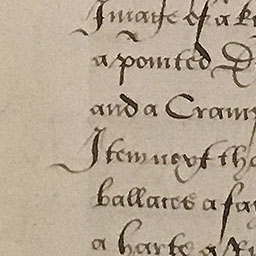 Image of a k
a pointed D
and a Cramp
Item next tho
ballaces a fa
a harte a Ri